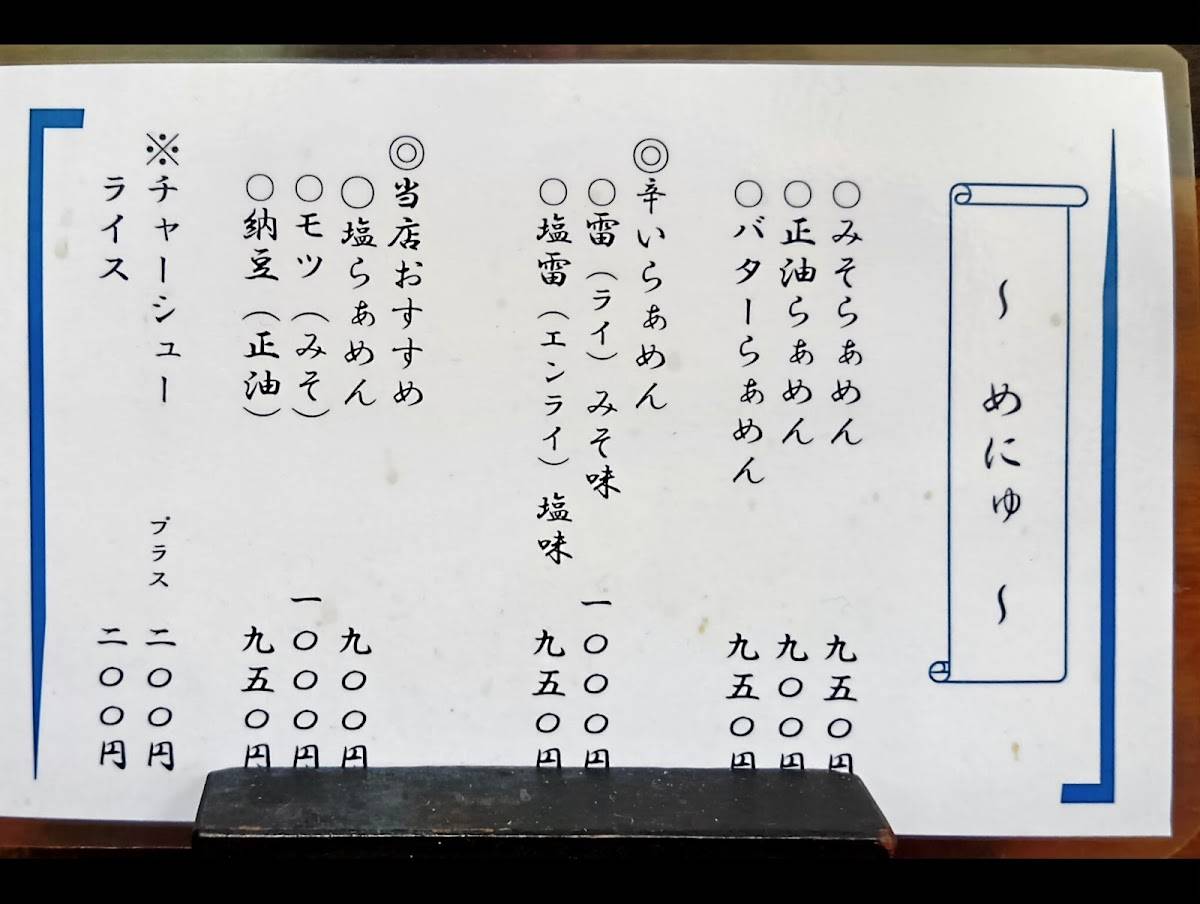 ～ めにゅ ～
○みそらぁめん 九五〇円
○正油らぁめん 九〇〇円
○バターらぁめん 九五〇円
◎辛いらぁめん
○雷（ライ）みそ味 一〇〇〇円
○塩雷（エンライ）塩味 九五〇円
◎当店おすすめ
○塩らぁめん 九〇〇円
○モツ（みそ） 一〇〇〇円
○納豆（正油） 九五〇円
※チャーシュー プラス 二〇〇円
ライス 二〇〇円